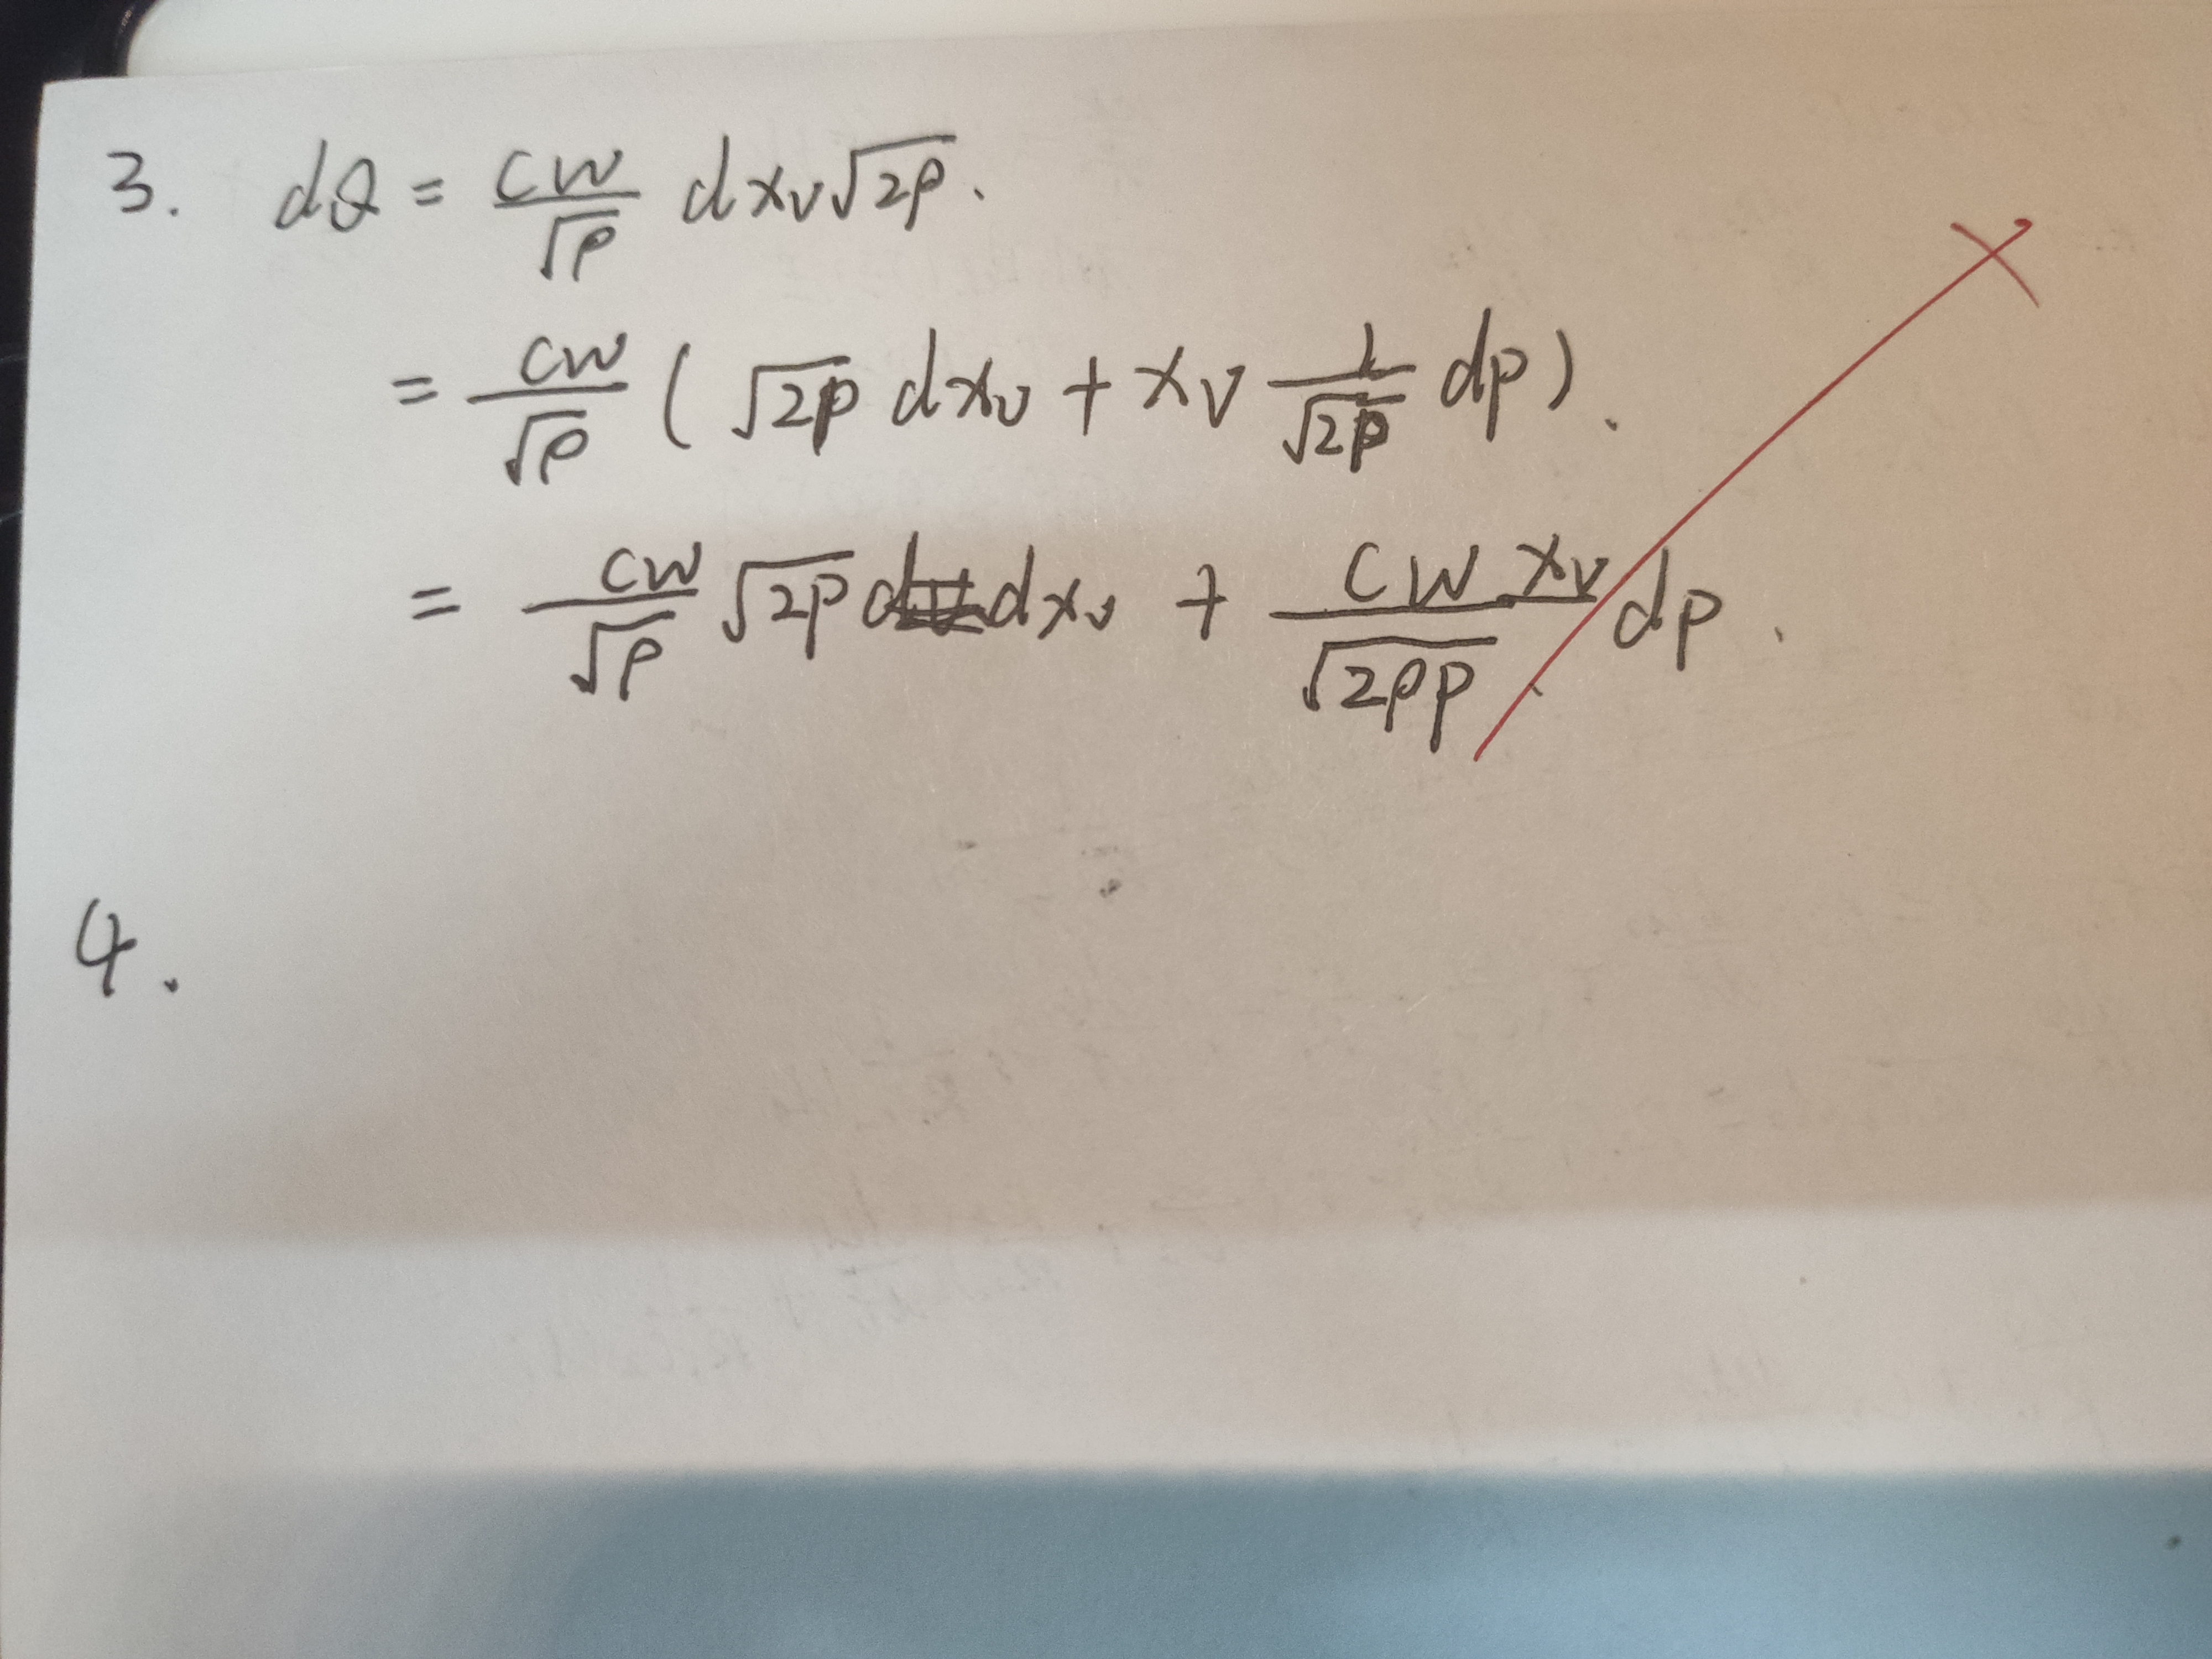 3. dQ = \frac{CW}{\sqrt{\rho}} dx_v\sqrt{2p}.
= \frac{CW}{\sqrt{\rho}} (\sqrt{2p} dx_v + x_v \frac{1}{\sqrt{2p}} dp).
= \frac{CW}{\sqrt{\rho}} \sqrt{2p} dx_v + \frac{CWx_v}{\sqrt{2\rho p}} dp.
4.